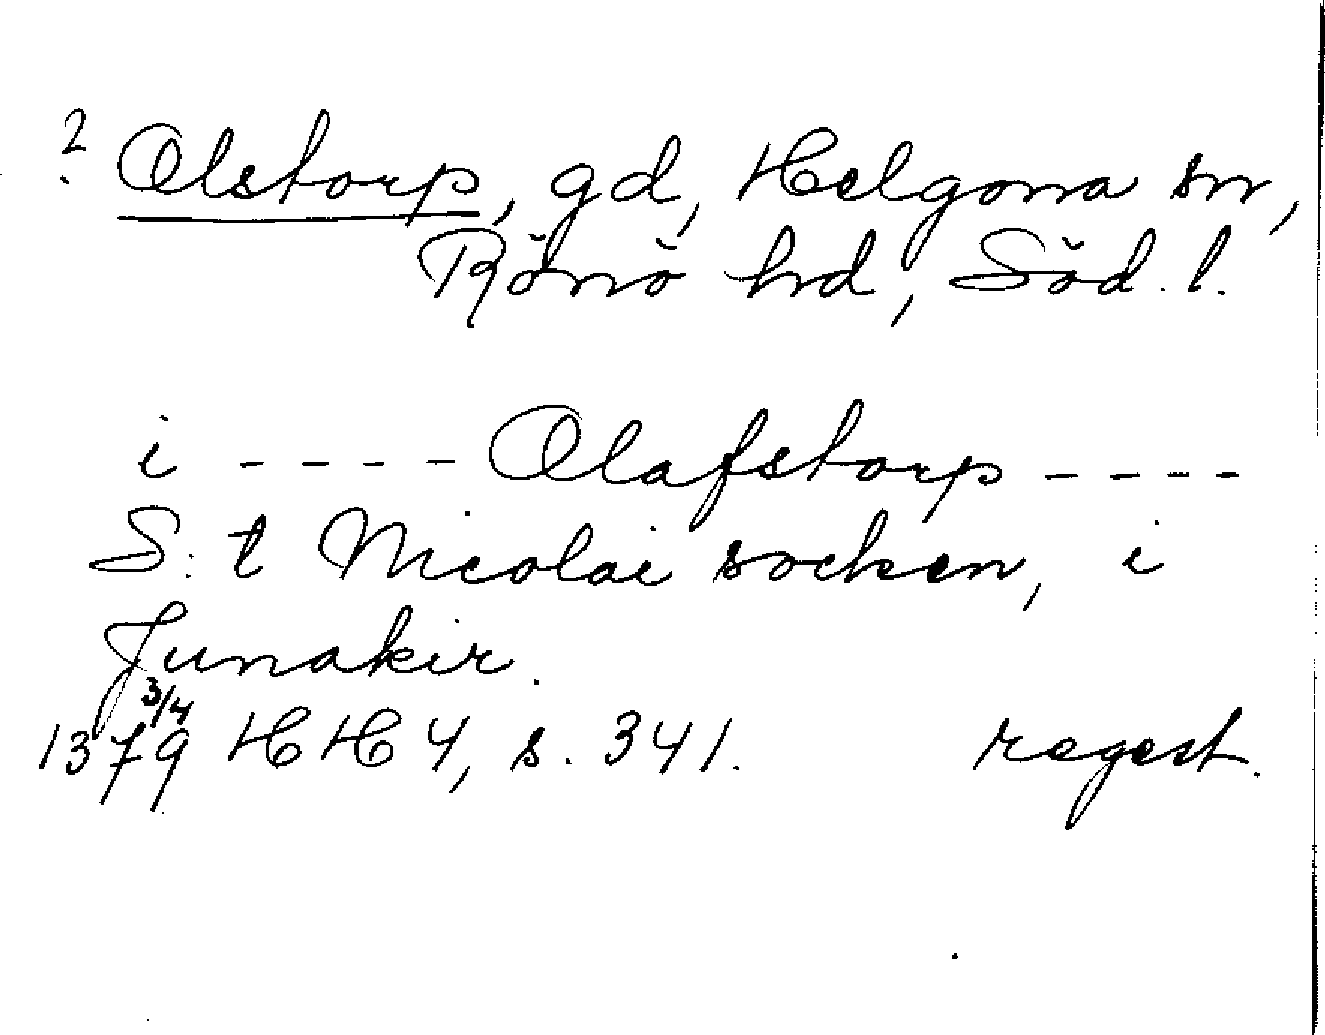 ? Olstorp, gd, Helgona sn,
Rönö hd, Söd. l.
i - - - - Olafstorp - - - -
S:t Nicolai socken, i
Junakir.
1379 3/4 HH 4, s. 341. regest.